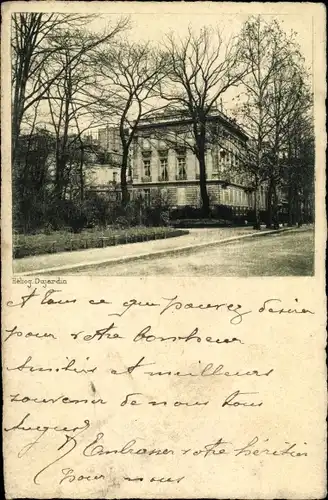 Héliog. Dujardin
A tous ce que pouvez désirer
pour votre bonheur
Amitiés et meilleurs
souvenir de nous tous
August
Embrasser votre héritier
pour nous